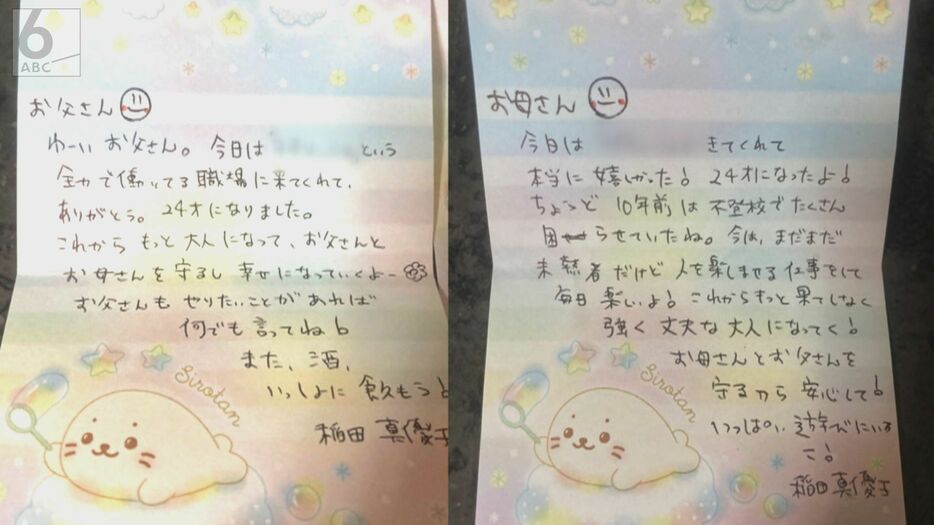 6
ABC
お父さん
わーい お父さん。今日は という
全力で働いてる職場に来てくれて、
ありがとう。24才になりました。
これから もっと大人になって、お父さんと
お母さんを守るし 幸せになっていくよー
お父さんも やりたいことがあれば
何でも言ってね!
また、酒、
いっしょに飲もう!
稲田 真優子
Sirotan
お母さん
今日は きてくれて
本当に 嬉しかった! 24才になったよ!
ちょうど 10年前は 不登校でたくさん
困らせていたね。今は、まだまだ
未熟者だけど 人を楽しませる仕事をして
毎日 楽しいよ! これからもっと果てしなく
強く 丈夫な大人になってく!
お母さんとお父さんを
守るから 安心して!
いっぱい 遊びにいこ
こ!
稲田 真優子
Sirotan